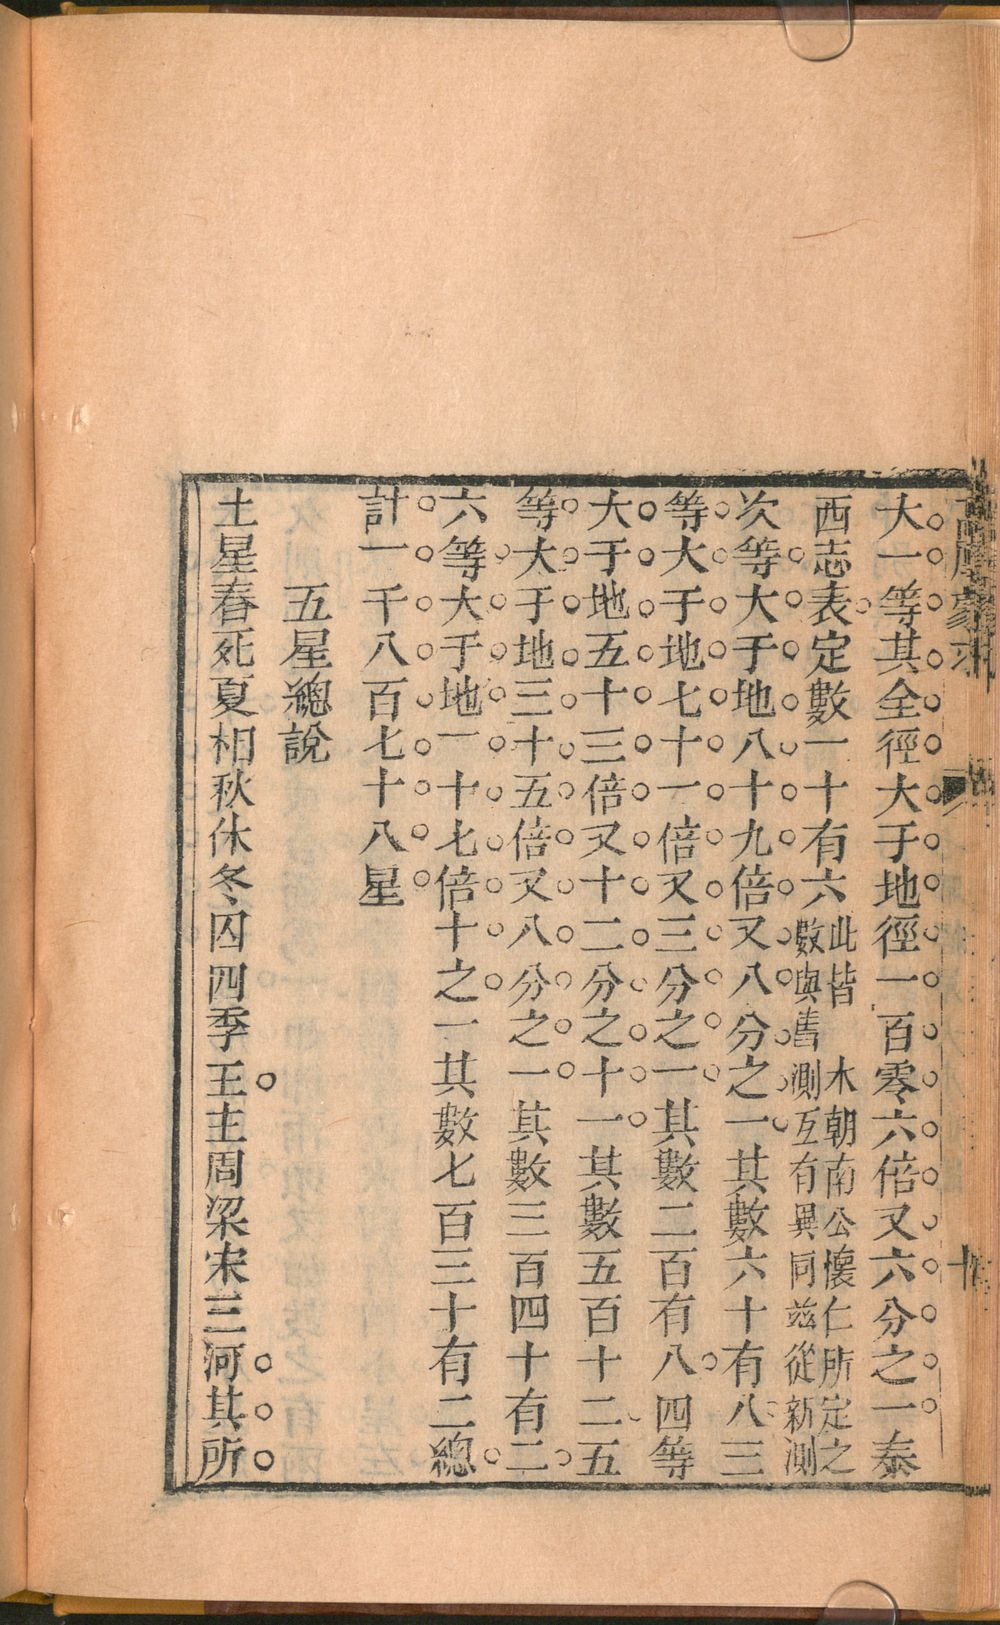 大一等其全徑大于地徑一百零六倍又六分之一泰
西志表定數一十有六此皆 本朝南公懷仁所定之
數與舊測互有異同兹從新測
次等大于地八十九倍又八分之一其數六十有八三
等大于地七十一倍又三分之一其數二百有八四等
大于地五十三倍又十二分之十一其數五百十二五
等大于地三十五倍又八分之一其數三百四十有二
六等大于地一十七倍十之一其數七百三十有二總
計一千八百七十八星
五星總說
土星春死夏相秋休冬囚四季王主周梁宋三河其所